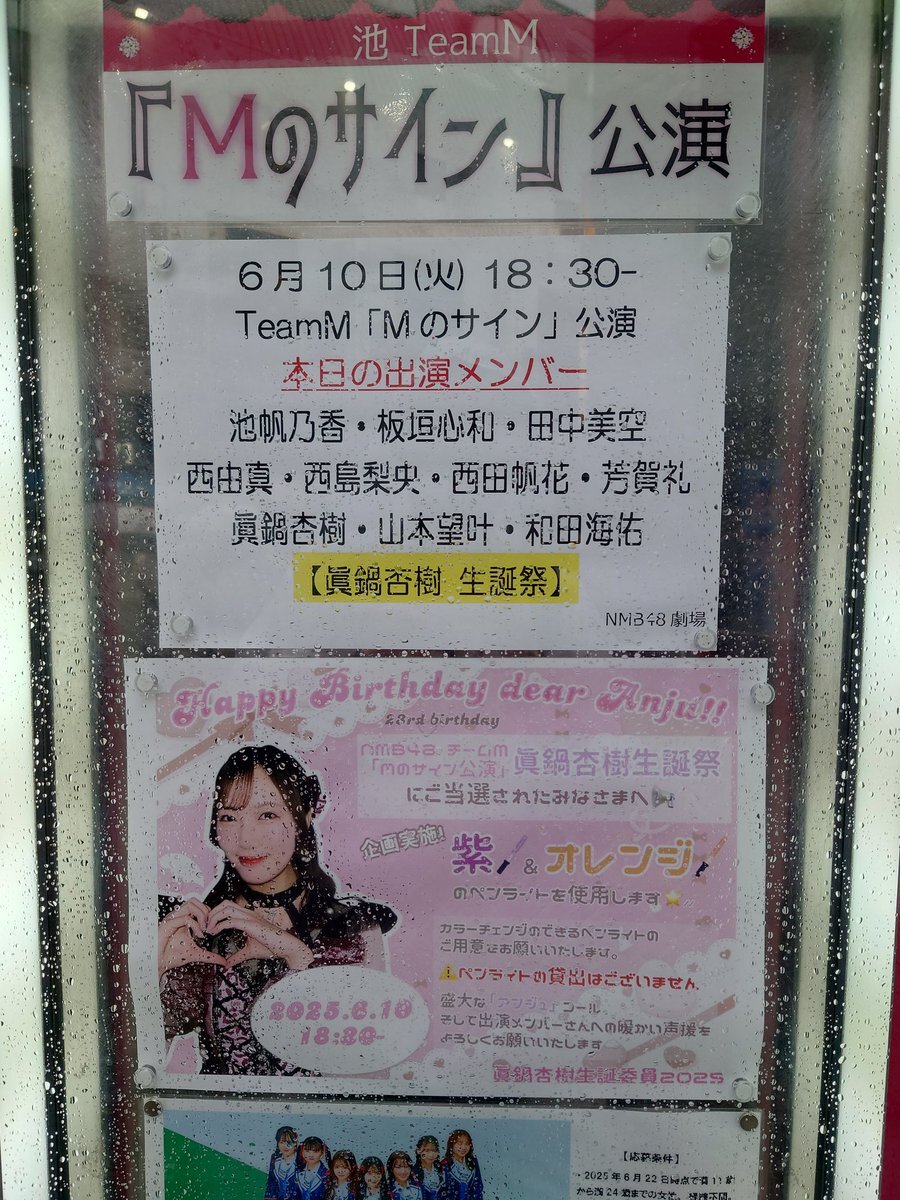 池 TeamM
『Mのサイン』公演
6月10日(火) 18:30-
TeamM「Mのサイン」公演
本日の出演メンバー
池帆乃香・板垣心和・田中美空
西由真・西島梨央・西田帆花・芳賀礼
眞鍋杏樹・山本望叶・和田海佑
【眞鍋杏樹 生誕祭】
NMB48 劇場
Happy Birthday dear Anju!!
23rd birthday
NMB48 チームM
「Mのサイン公演」眞鍋杏樹生誕祭
にご当選されたみなさまへ
企画実施!
紫 & オレンジ
のペンライトを使用します
カラーチェンジのできるペンライトの
ご用意をお願いいたします。
⚠ペンライトの貸出はございません
盛大な「アンジュ」コール
そして出演メンバーさんへの暖かい声援を
よろしくお願いいたします
2025.6.10
18:30-
眞鍋杏樹生誕委員2025
【応募条件】
・2025年6月22日時点で満11歳
から満24歳までの女性。経験不問。